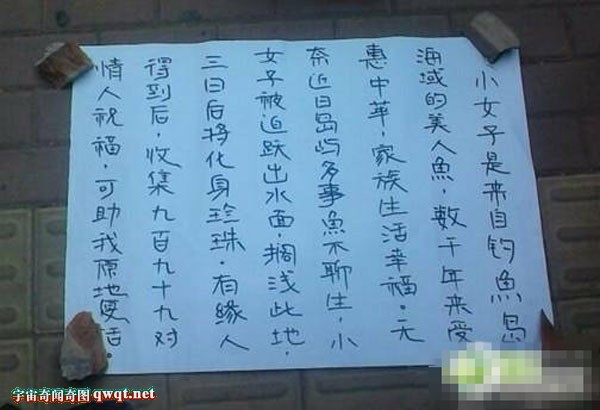 小女子是来自钓魚岛
海域的美人魚，数千年来受
惠中華，家族生活幸福。无
奈近日岛屿多事魚不聊生，小
女子被迫跃出水面，搁浅此地，
三日后将化身珍珠。有緣人
得到后，收集九百九十九对
情人祝福，可助我原地复活。
宇宙奇闻奇图 qwqt.net